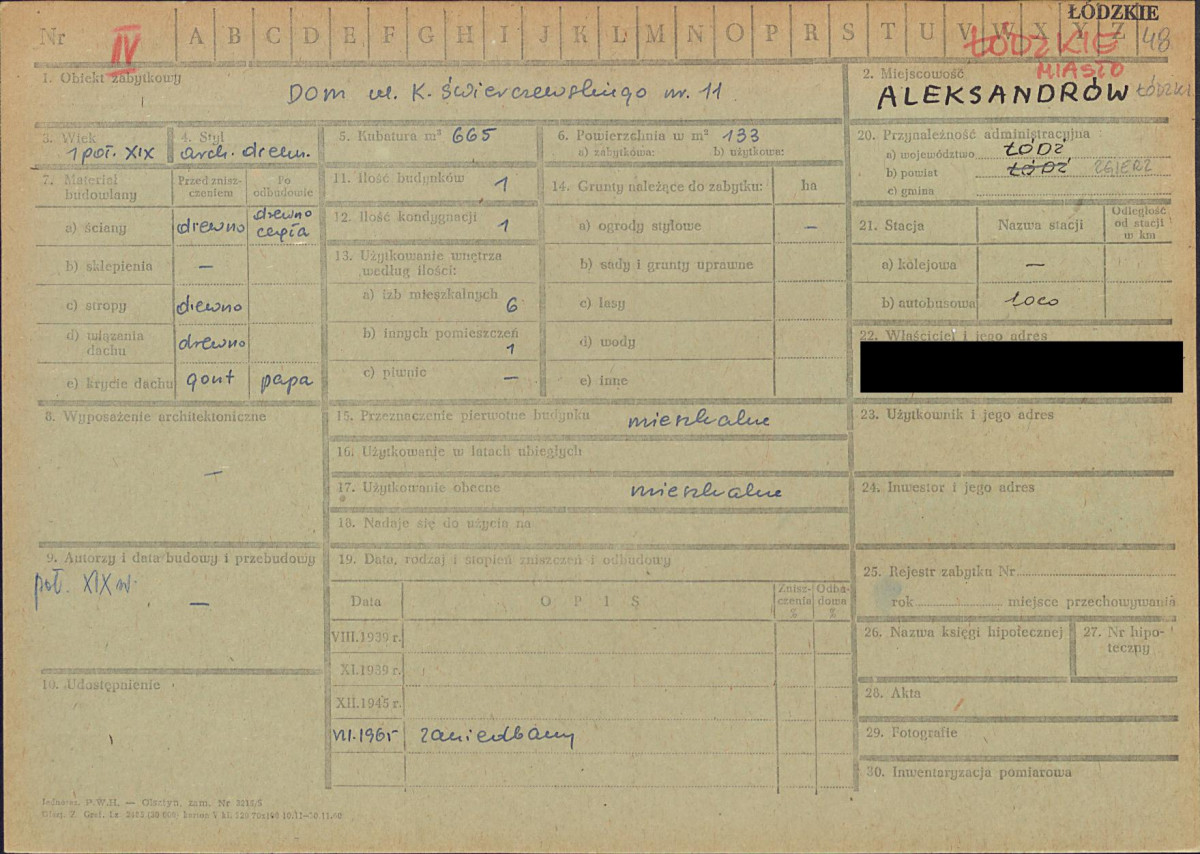 ŁÓDZKIE
Nr IV A B C D E F G H I J K L M N O P R S T U V W X Y Z 48
ŁÓDZKIE
MIASTO
1. Obiekt zabytkowy
Dom ul. K. Świerczewskiego nr. 11
2. Miejscowość
ALEKSANDRÓW ŁÓDZKI
3. Wiek
1 poł. XIX
4. Styl
arch. drewn.
5. Kubatura m³ 665
6. Powierzchnia w m² 133
a) zabytkowa: b) użytkowa:
20. Przynależność administracyjna
a) województwo ŁÓDŹ
b) powiat ŁÓDŹ ZGIERZ
c) gmina
7. Materiał budowlany
Przed zniszczeniem
Po odbudowie
a) ściany drewno drewno cegła
b) sklepienia —
c) stropy drewno
d) wiązania dachu drewno
e) krycie dachu gont papa
11. Ilość budynków 1
12. Ilość kondygnacji 1
13. Użytkowanie wnętrza według ilości:
a) izb mieszkalnych 6
b) innych pomieszczeń 1
c) piwnic —
14. Grunty należące do zabytku: ha
a) ogrody stylowe —
b) sady i grunty uprawne
c) lasy
d) wody
e) inne
21. Stacja Nazwa stacji Odległość od stacji w km
a) kolejowa —
b) autobusowa loco
22. Właściciel i jego adres
8. Wyposażenie architektoniczne
—
15. Przeznaczenie pierwotne budynku mieszkalne
16. Użytkowanie w latach ubiegłych
17. Użytkowanie obecne mieszkalne
18. Nadaje się do użycia na
23. Użytkownik i jego adres
24. Inwestor i jego adres
9. Autorzy i data budowy i przebudowy
poł. XIX w.
—
19. Data, rodzaj i stopień zniszczeń i odbudowy
Data OPIS Zniszczenia % Odbudowa %
VIII.1939 r.
XI.1939 r.
XII.1945 r.
VII.1965 zaniedbany
25. Rejestr zabytku Nr
rok miejsce przechowywania
26. Nazwa księgi hipotecznej
27. Nr hipoteczny
10. Udostępnienie
28. Akta
29. Fotografie
30. Inwentaryzacja pomiarowa
P.W.H. — Olsztyn, zam. Nr